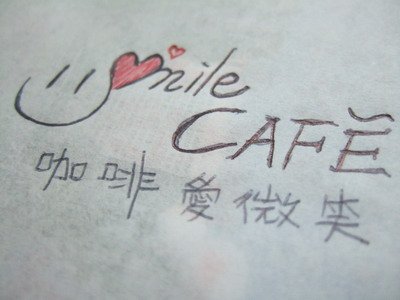 Smile
CAFĚ
咖啡 愛微笑